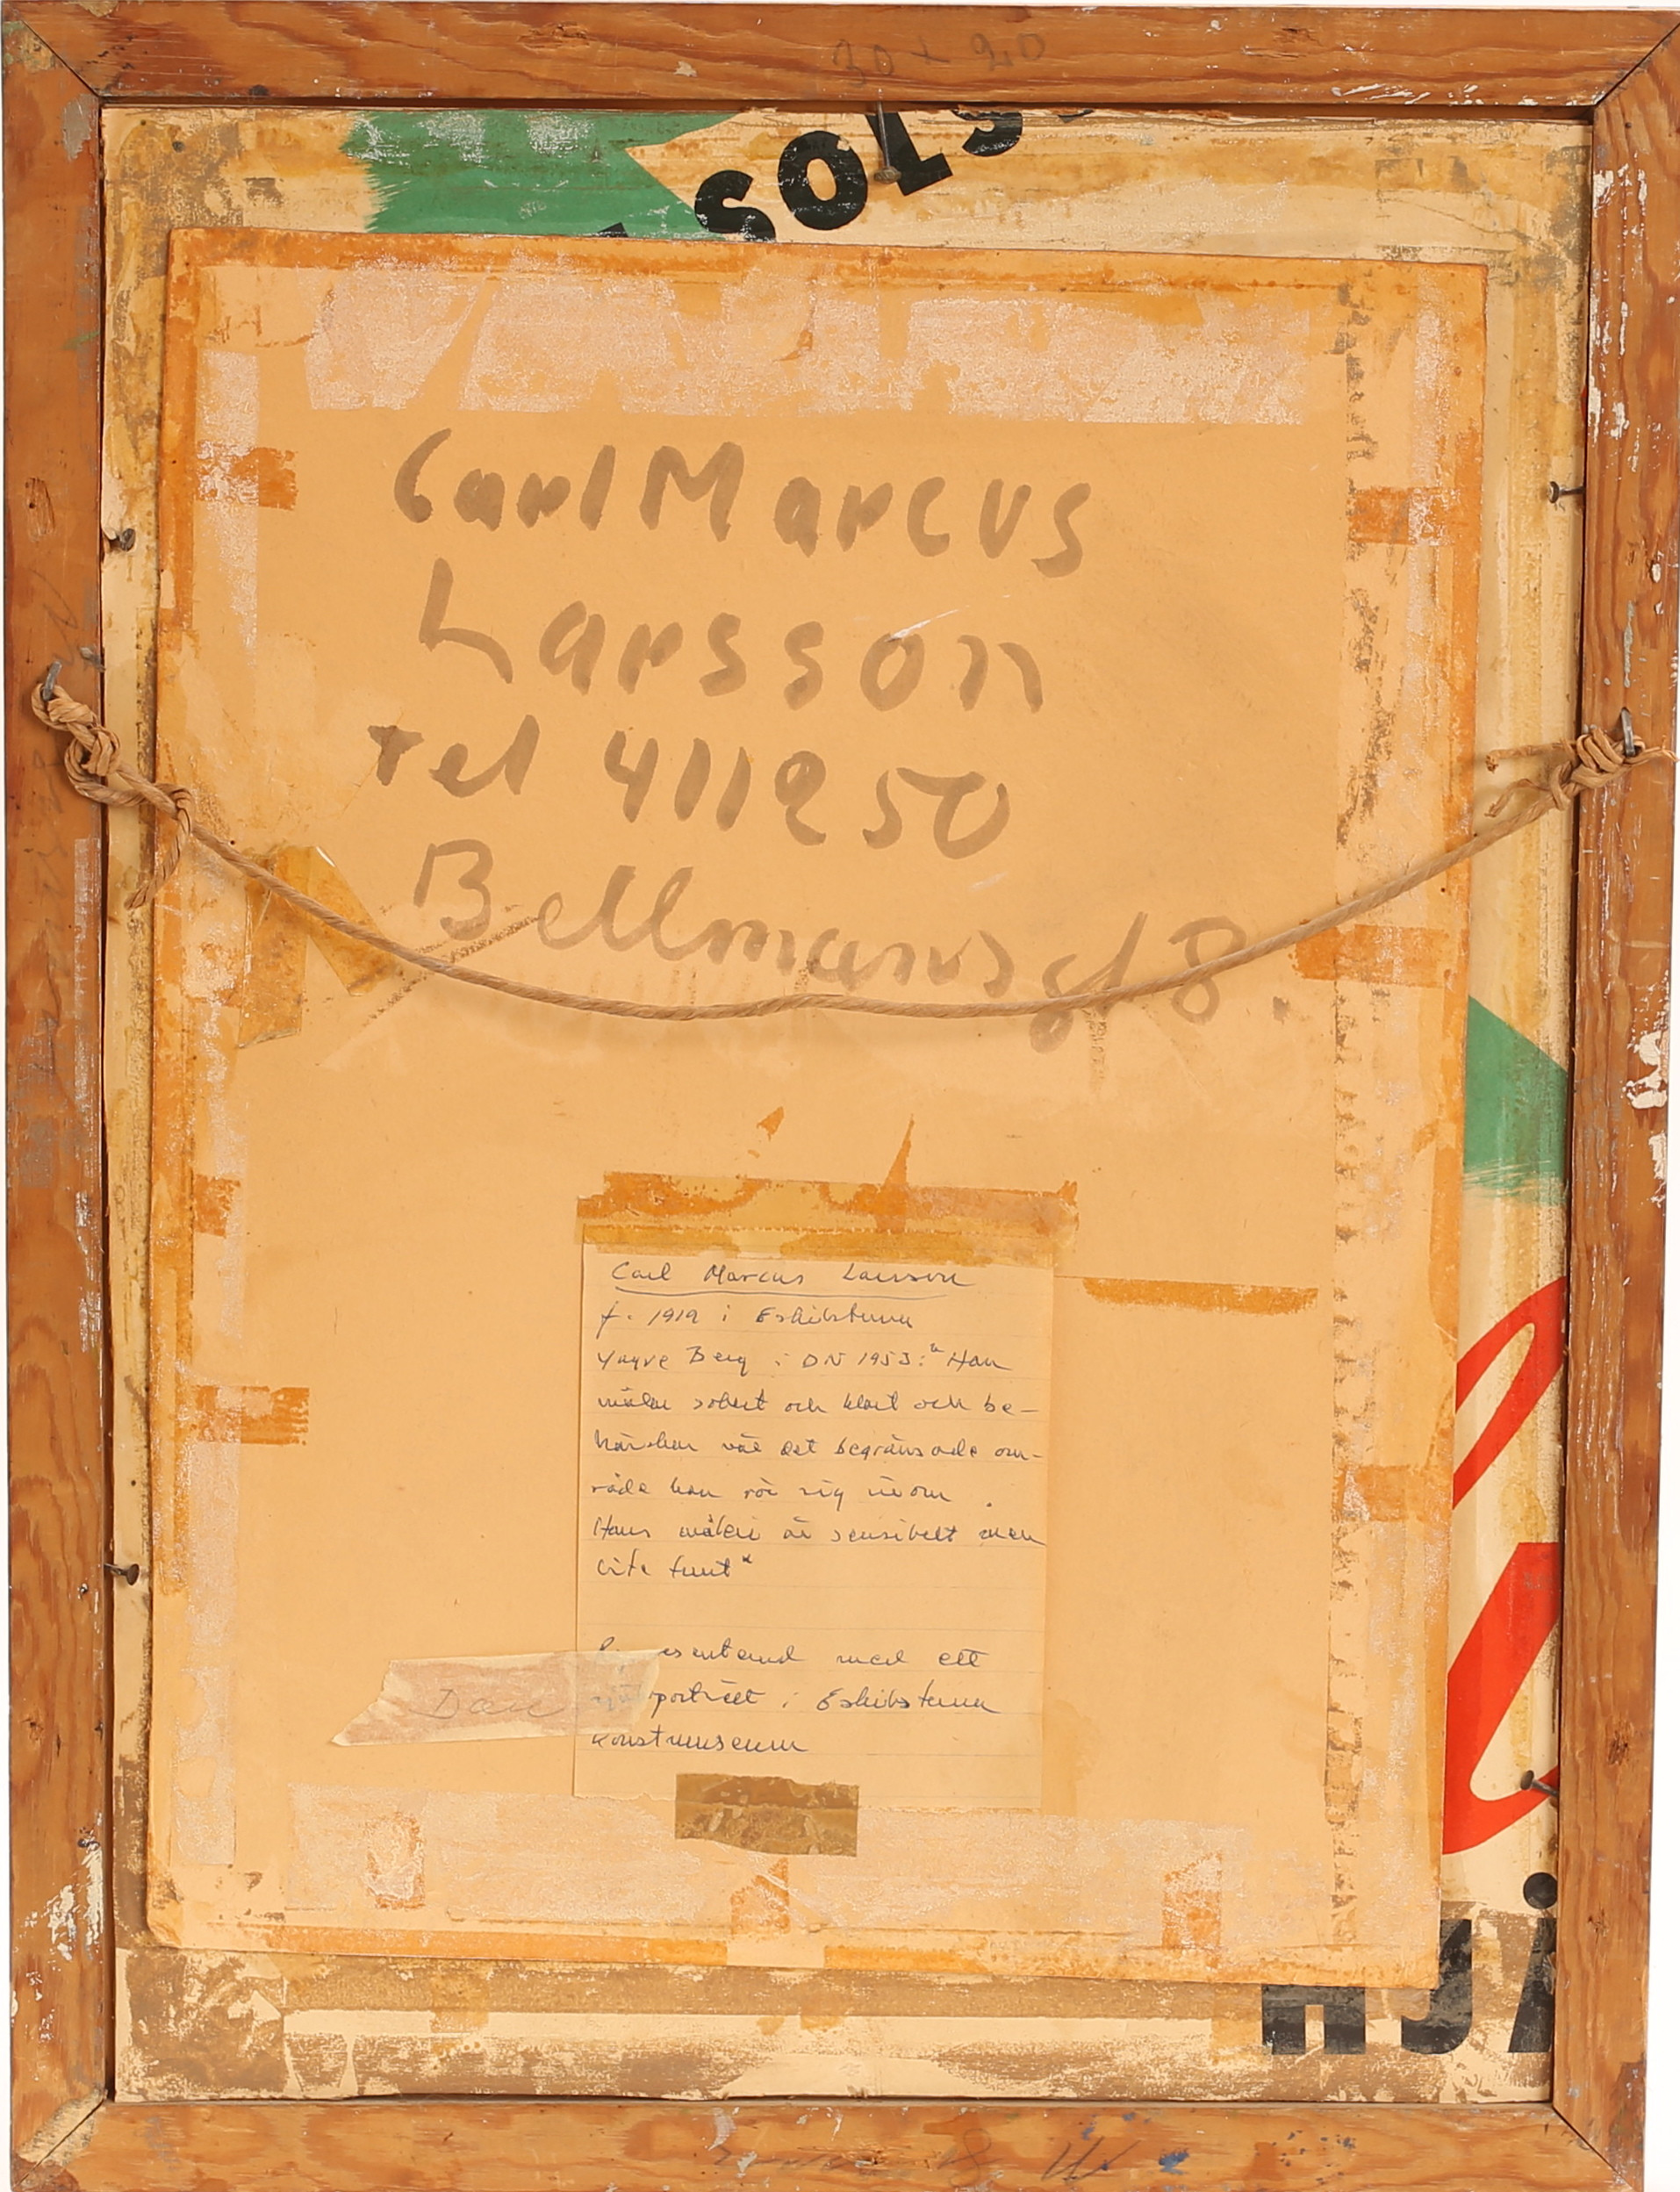 30 x 20
Carl Marcus
Larsson
tel 411250
Bellmansg 8.
Carl Marcus Larsson
f. 1919 i Eskilstuna
Yngve Berg i DN 1953: "Han
målar sobert och klart och be-
härskar väl det begränsade om-
råde han rör sig inom.
Hans måleri är sensibelt men
lite tunt"
med ett
porträtt i Eskilstuna
Konstmuseum